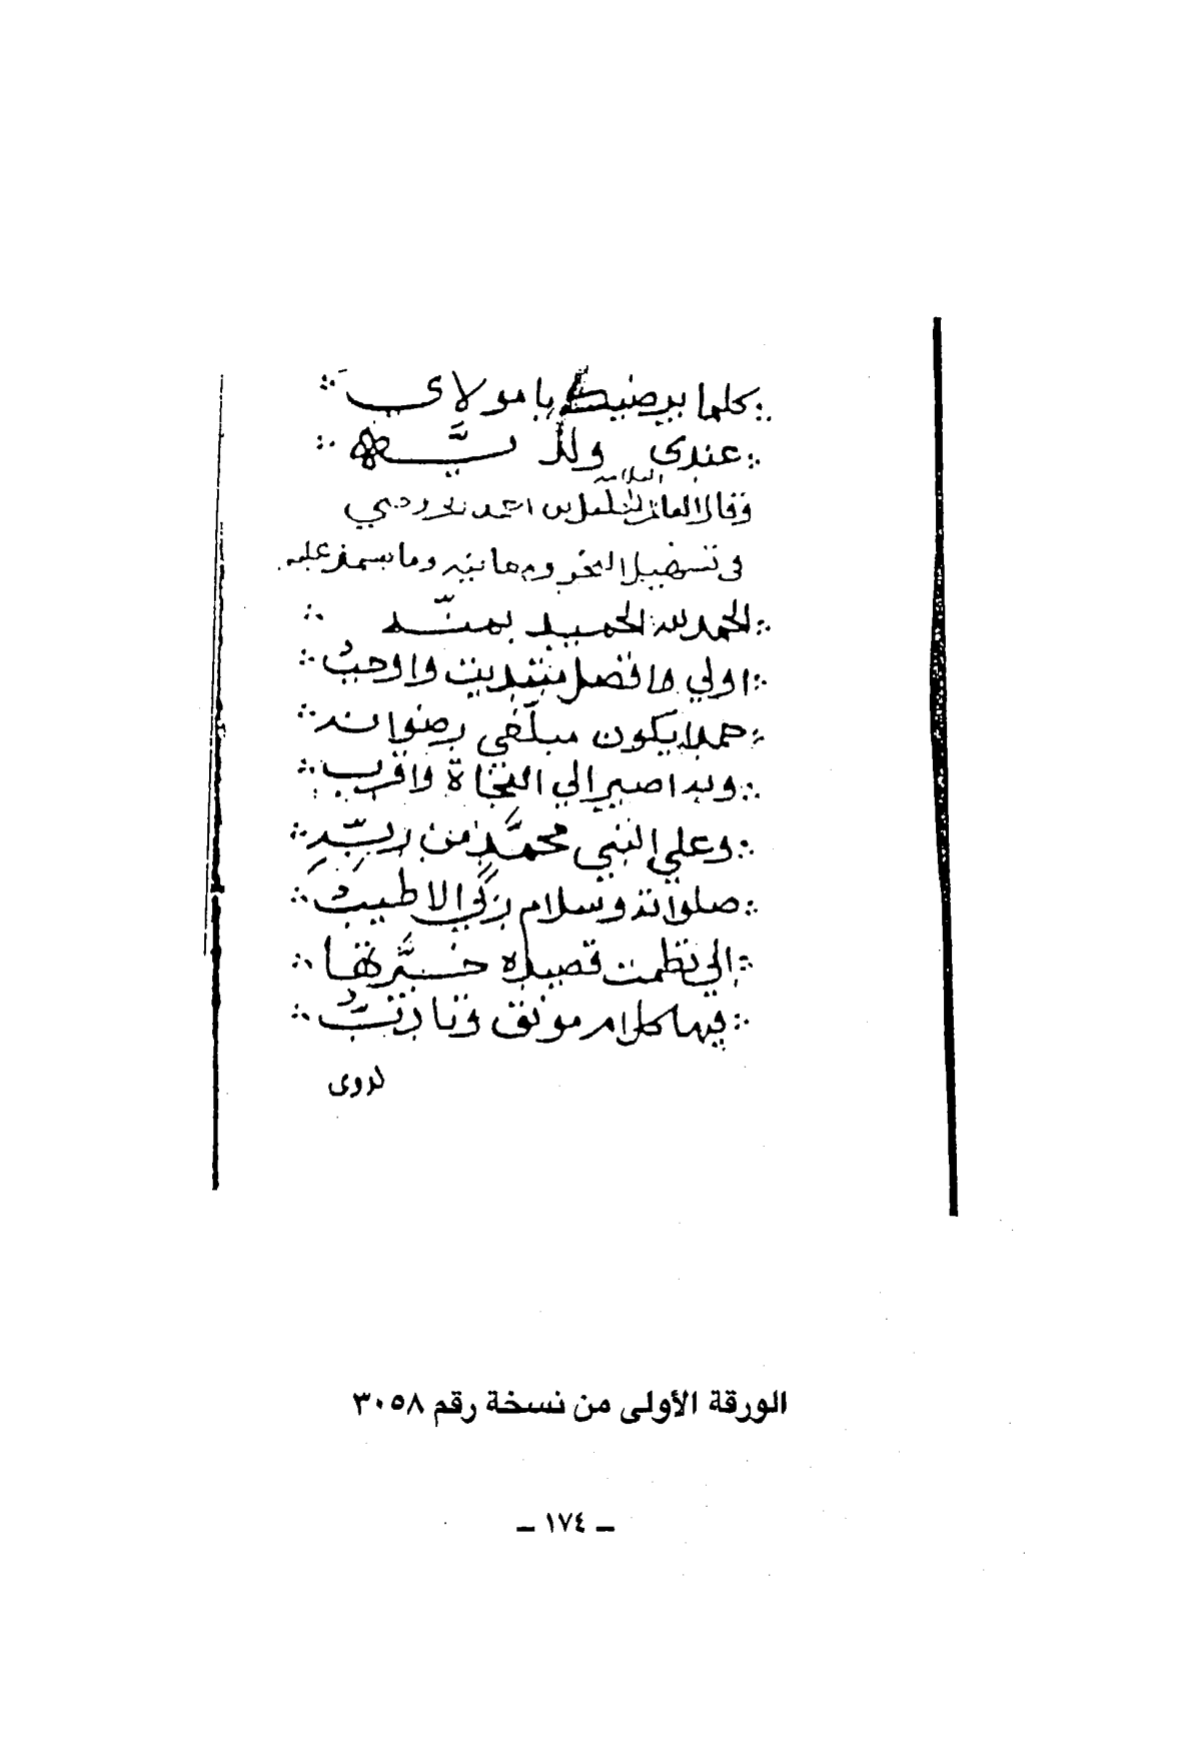 كلما يرضيك يا مولاي
عندي ولذيَّه
العلامه
وقال العالم الخليل بن احمد
في تسهيل النحو ومعانيه وما يسمى عليه
الحمد لله الحميد بمنّه
اولي وافضل مبتديت واوجبُ
حمدا يكون مبلّغي رضوانه
وبه اصير الي النجاة واقرب
وعلي النبي محمَّدٍ من ربّهِ
صلواته وسلام ربّي الاطيبُ
اني نظمت قصيدة حبَّرتها
فيها كلام مونق وتادّبُ
لذوي
الورقة الأولى من نسخة رقم ٣٠٥٨
– ١٧٤ –